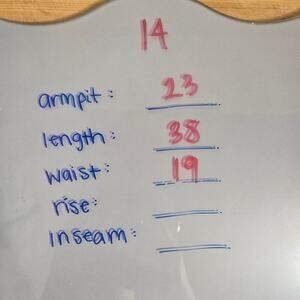 14
armpit: 23
length: 38
waist: 19
rise:
inseam: